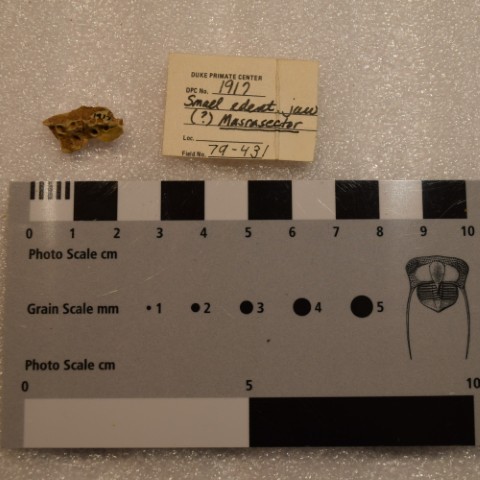 DUKE PRIMATE CENTER
DPC No. 1917
Small edent. jaw
(?) Masrasector
Loc.
Field No. 79-431
0 1 2 3 4 5 6 7 8 9 10
Photo Scale cm
Grain Scale mm 1 2 3 4 5
Photo Scale cm
0 5 10